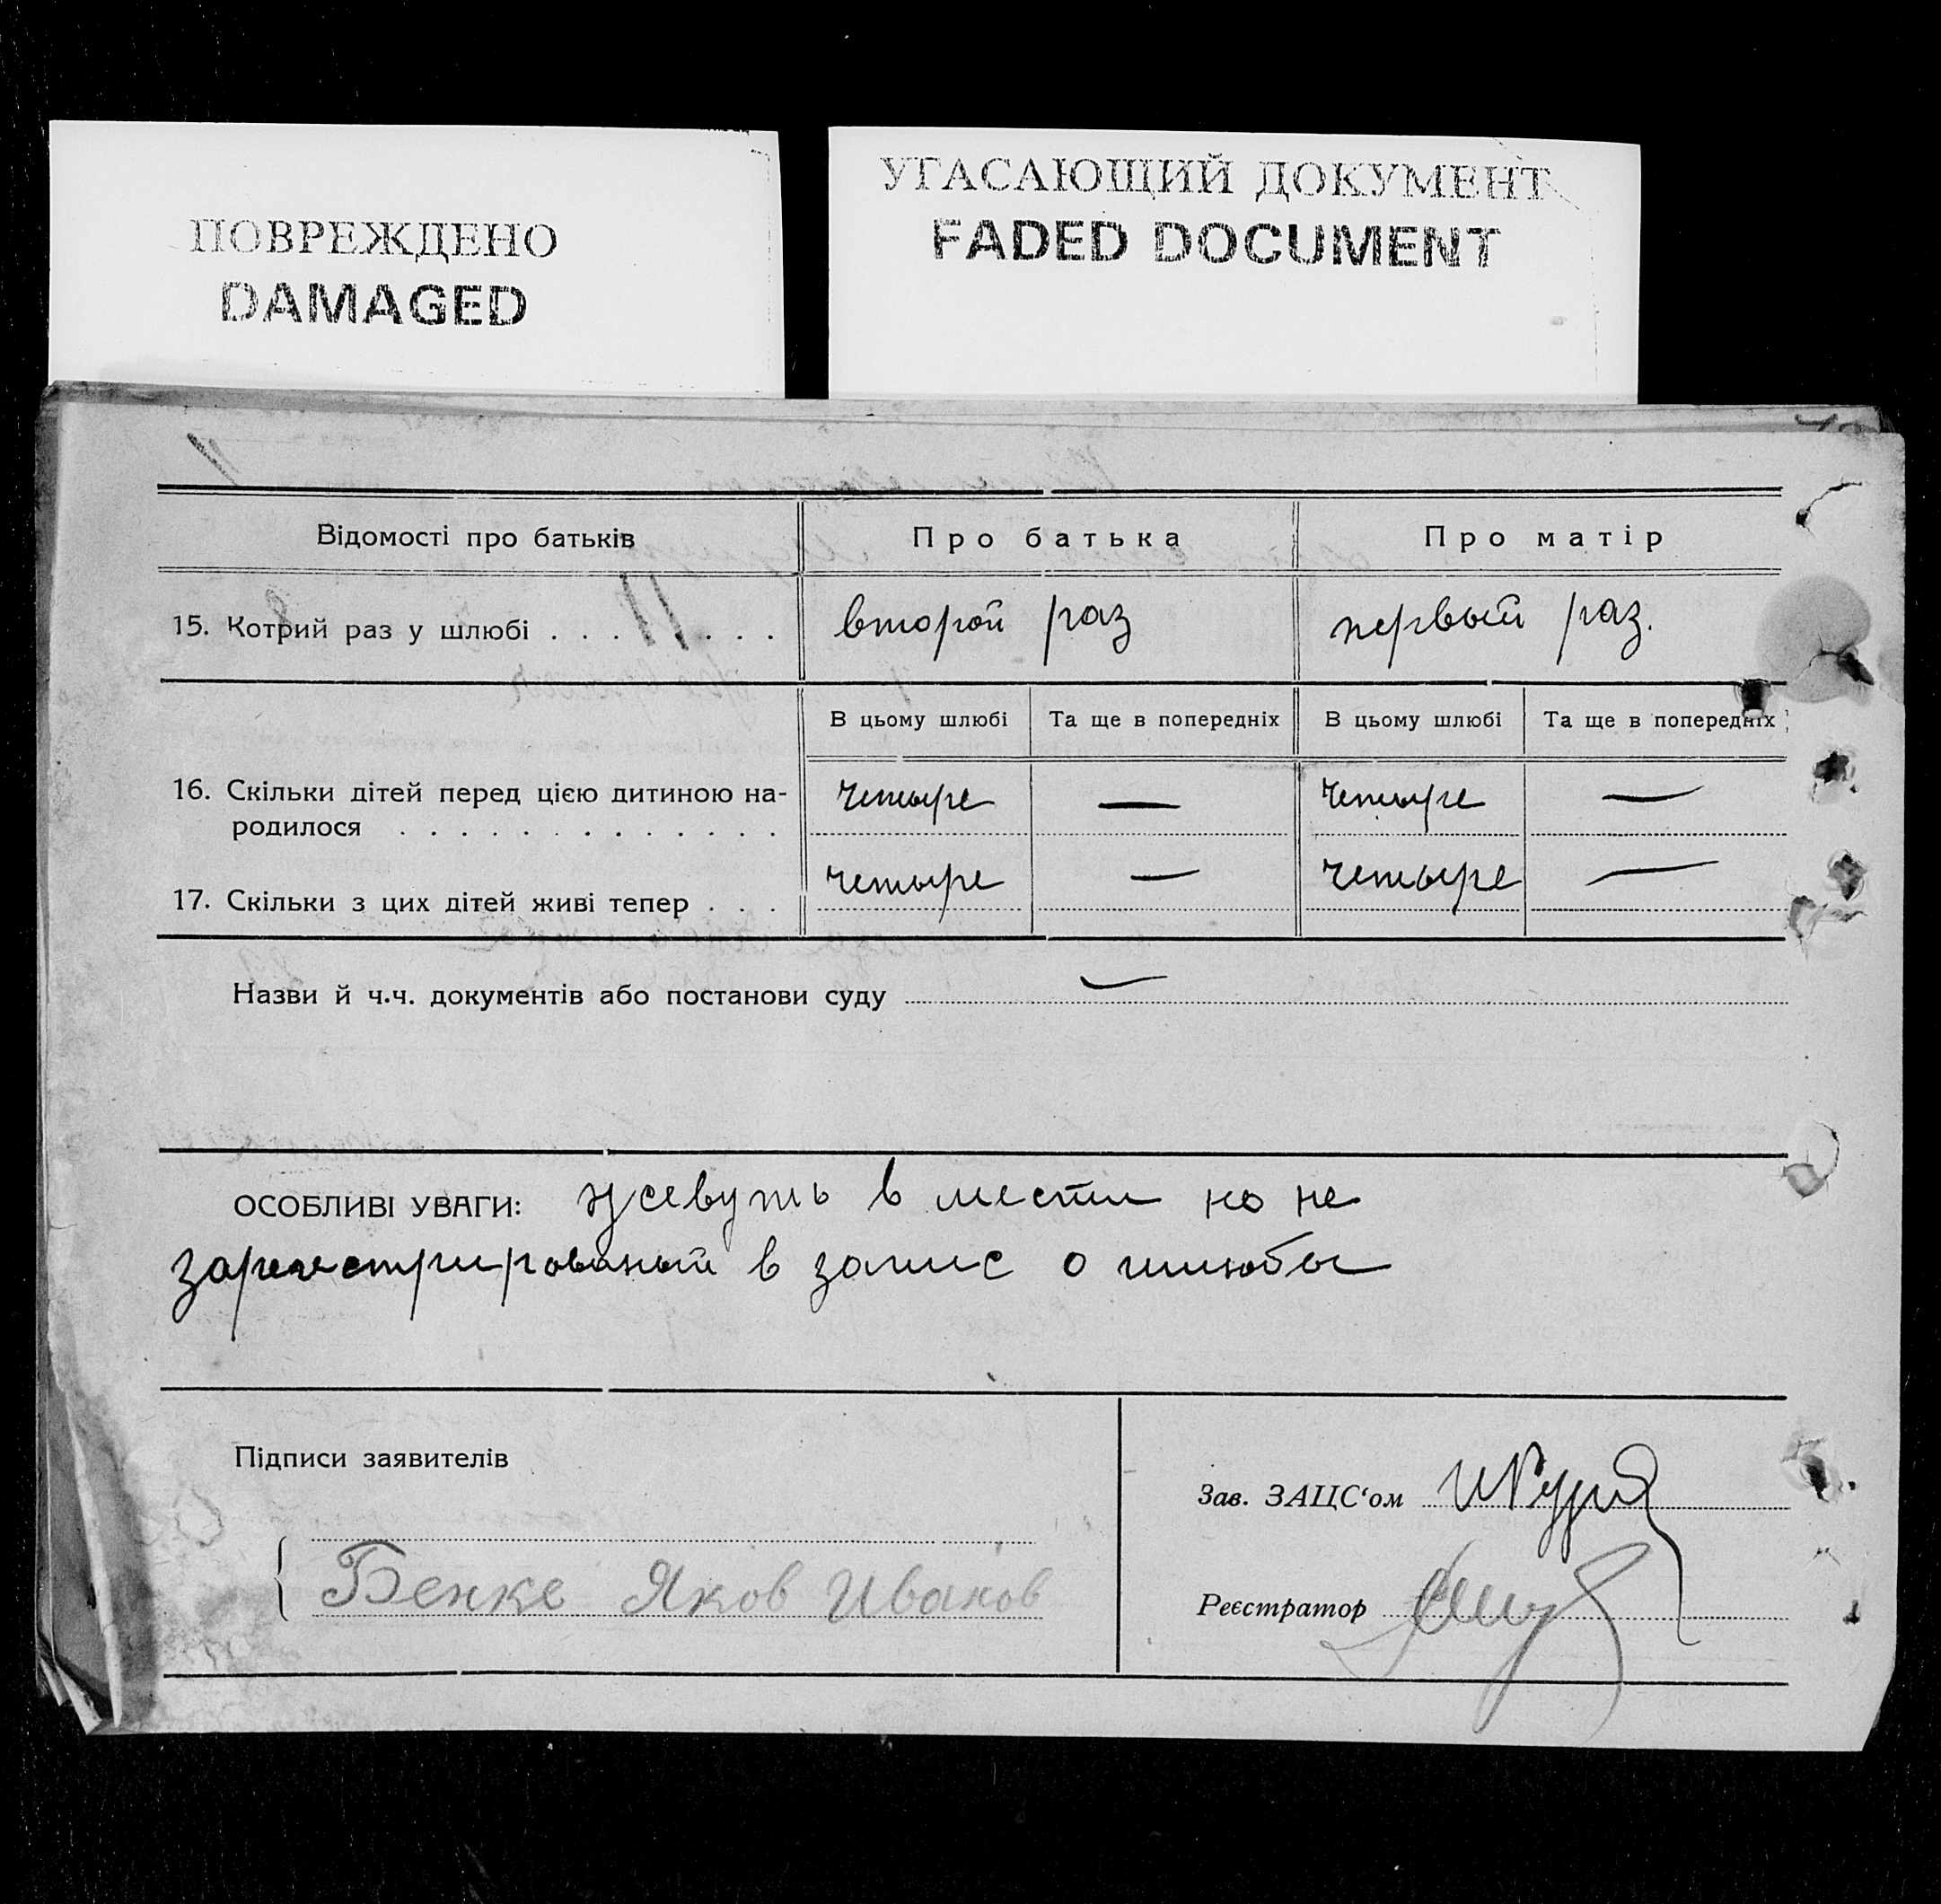 ПОВРЕЖДЕНО
DAMAGED
УГАСАЮЩИЙ ДОКУМЕНТ
FADED DOCUMENT
Відомості про батьків Про батька Про матір
15. Котрий раз у шлюбі . . . . . . . второй раз первый раз.
В цьому шлюбі Та ще в попередніх В цьому шлюбі Та ще в попередніх
16. Скільки дітей перед цією дитиною на- четыре — четыре —
родилося . . . . . . . . . . . . .
17. Скільки з цих дітей живі тепер . . . четыре — четыре —
Назви й ч.ч. документів або постанови суду —
ОСОБЛИВІ УВАГИ: жевуть в мести но не
зарегестрированый в запис о шлюбы
Підписи заявителів
Зав. ЗАЦС‘ом
Бенке Яков Иванов
Реєстратор